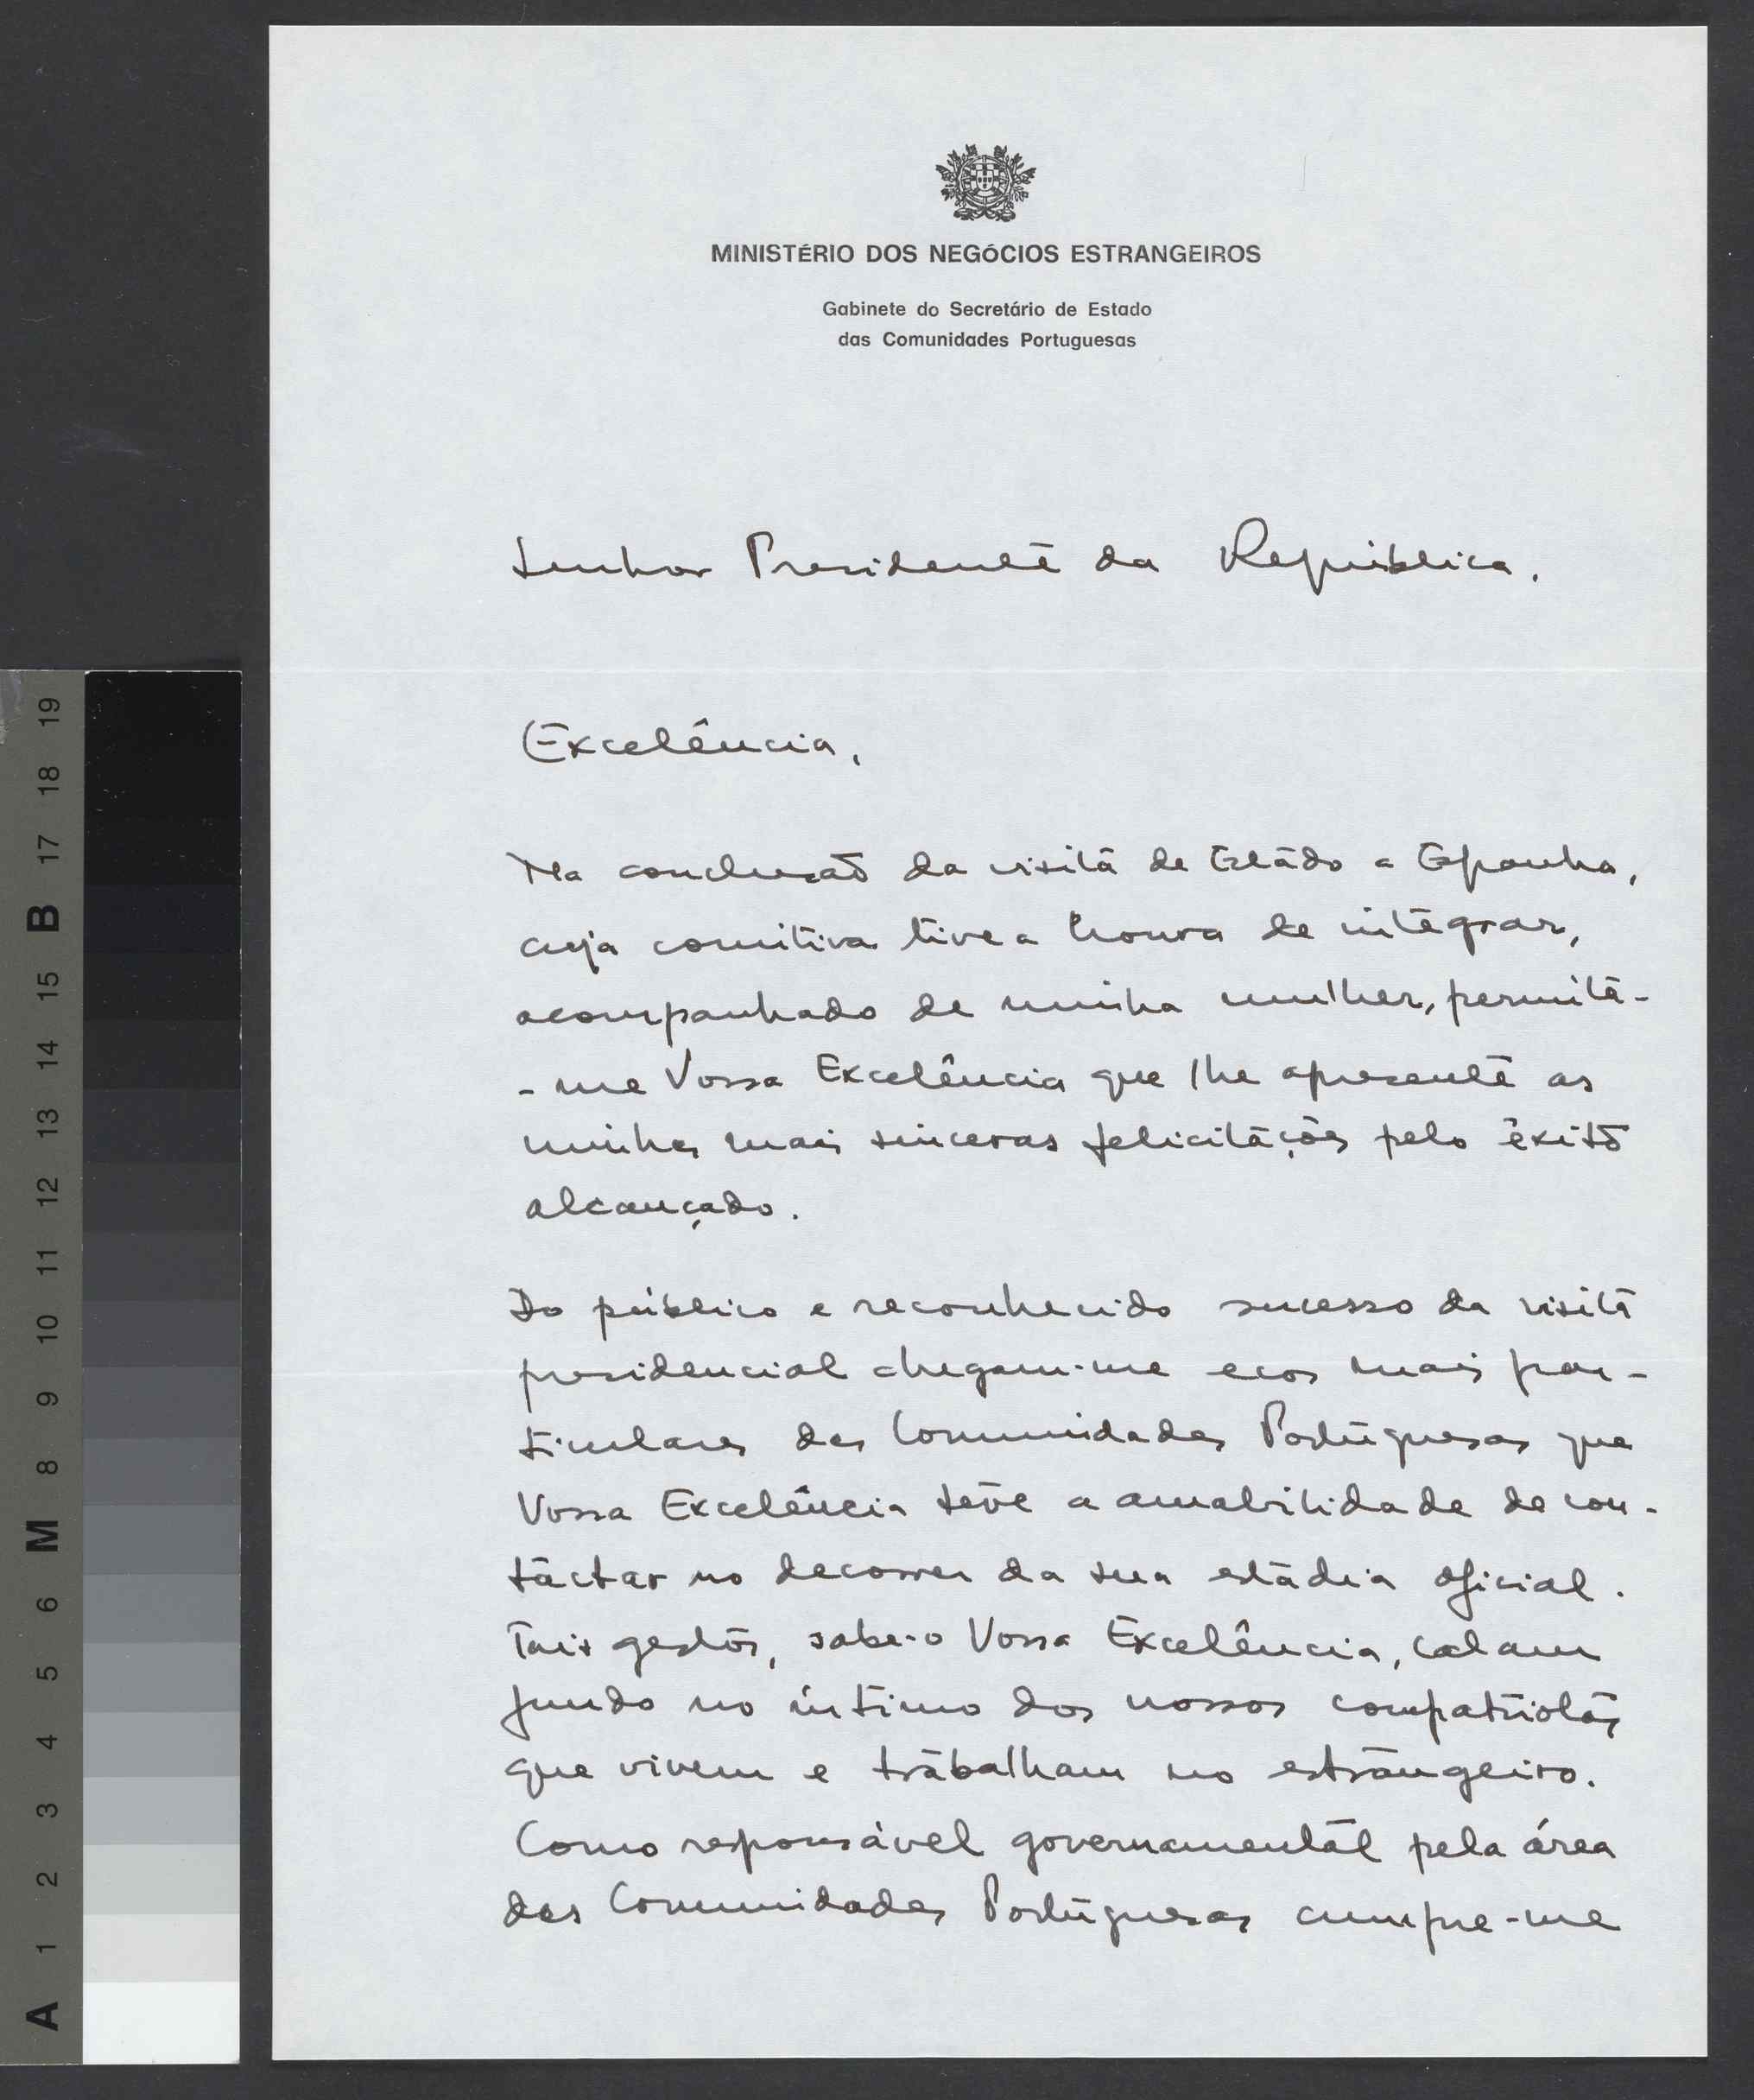 MINISTÉRIO DOS NEGÓCIOS ESTRANGEIROS
Gabinete do Secretário de Estado
das Comunidades Portuguesas
Senhor Presidente da República,
Excelência,
Na conclusão da visita de Estado a Espanha,
cuja comitiva tive a honra de integrar,
acompanhado de minha mulher, permita-
-me Vossa Excelência que lhe apresente as
minhas mais sinceras felicitações pelo êxito
alcançado.
Do público e reconhecido sucesso da visita
presidencial chegam-me ecos mais par-
ticulares das Comunidades Portuguesas que
Vossa Excelência teve a amabilidade de con-
tactar no decorrer da sua estadia oficial.
Tais gestos, sabe-o Vossa Excelência, calam
fundo no íntimo dos nossos compatriotas
que vivem e trabalham no estrangeiro.
Como responsável governamental pela área
das Comunidades Portuguesas cumpre-me
A 1 2 3 4 5 6 M 8 9 10 11 12 13 14 15 B 17 18 19